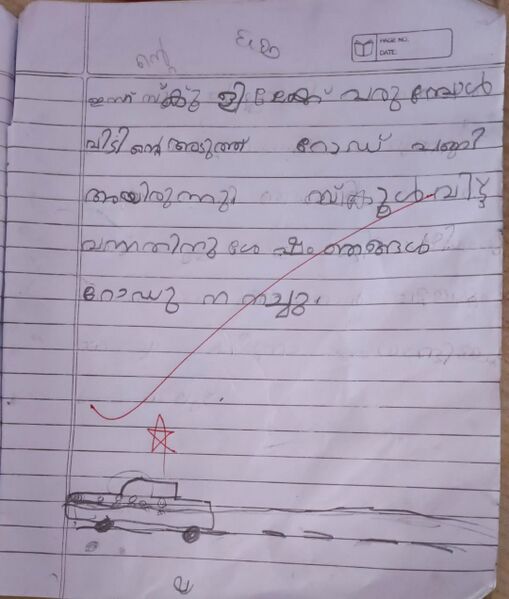 PAGE NO.:
DATE:
ഇന്ന് സ്ക്കൂ ളി ലേക്ക് വരു മ്പോൾ
വീട്ടി ന്റെ അടുത്ത് റോഡ് പണി
ആയിരുന്നു. സ്ക്കൂൾ വിട്ട്
വന്നതിനു ശേ ഷം ഞങ്ങൾ
റോഡു ന നച്ചു.